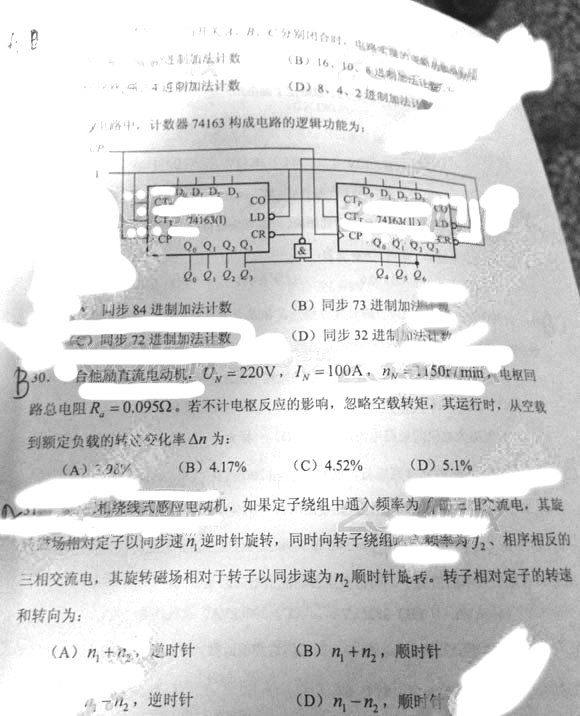 B
开关 A、B、C 分别闭合时，电路实现的
进制加法计数 （B）16、10、8 进制加法计数
4 进制加法计数 （D）8、4、2 进制加法计数
电路中，计数器 74163 构成电路的逻辑功能为：
D₀ D₁ D₂ D₃ D₀ D₁ D₂ D₃
CT_P CO CT_P CO
CT_T 74163(I) LD CT_T 74163(II) LD
CP CR CP CR
Q₀ Q₁ Q₂ Q₃ & Q₀ Q₁ Q₂ Q₃
Q₀ Q₁ Q₂ Q₃ Q₄ Q₅ Q₆
同步 84 进制加法计数 （B）同步 73 进制加法计数
（C）同步 72 进制加法计数 （D）同步 32 进制加法计数
B 30. 台他励直流电动机，U_N = 220V，I_N = 100A，n_N = 1150r/min，电枢回
路总电阻 R_a = 0.095Ω。若不计电枢反应的影响，忽略空载转矩，其运行时，从空载
到额定负载的转速变化率 Δn 为：
（A）3.98% （B）4.17% （C）4.52% （D）5.1%
31. 相绕线式感应电动机，如果定子绕组中通入频率为 f₁ 的三相交流电，其旋
转磁场相对定子以同步速 n₁ 逆时针旋转，同时向转子绕组 频率为 f₂、相序相反的
三相交流电，其旋转磁场相对于转子以同步速为 n₂ 顺时针旋转。转子相对定子的转速
和转向为：
（A）n₁ + n₂，逆时针 （B）n₁ + n₂，顺时针
n₁ − n₂，逆时针 （D）n₁ − n₂，顺时针